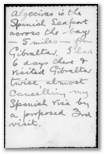 Algeciras is the
Spanish Seaport
across the bay
5 miles from
Gibraltar. I was
6 days there &
visited Gibraltar
twice, almost
Cancelling my
Spanish Visa by
a proposed 3rd
visit.